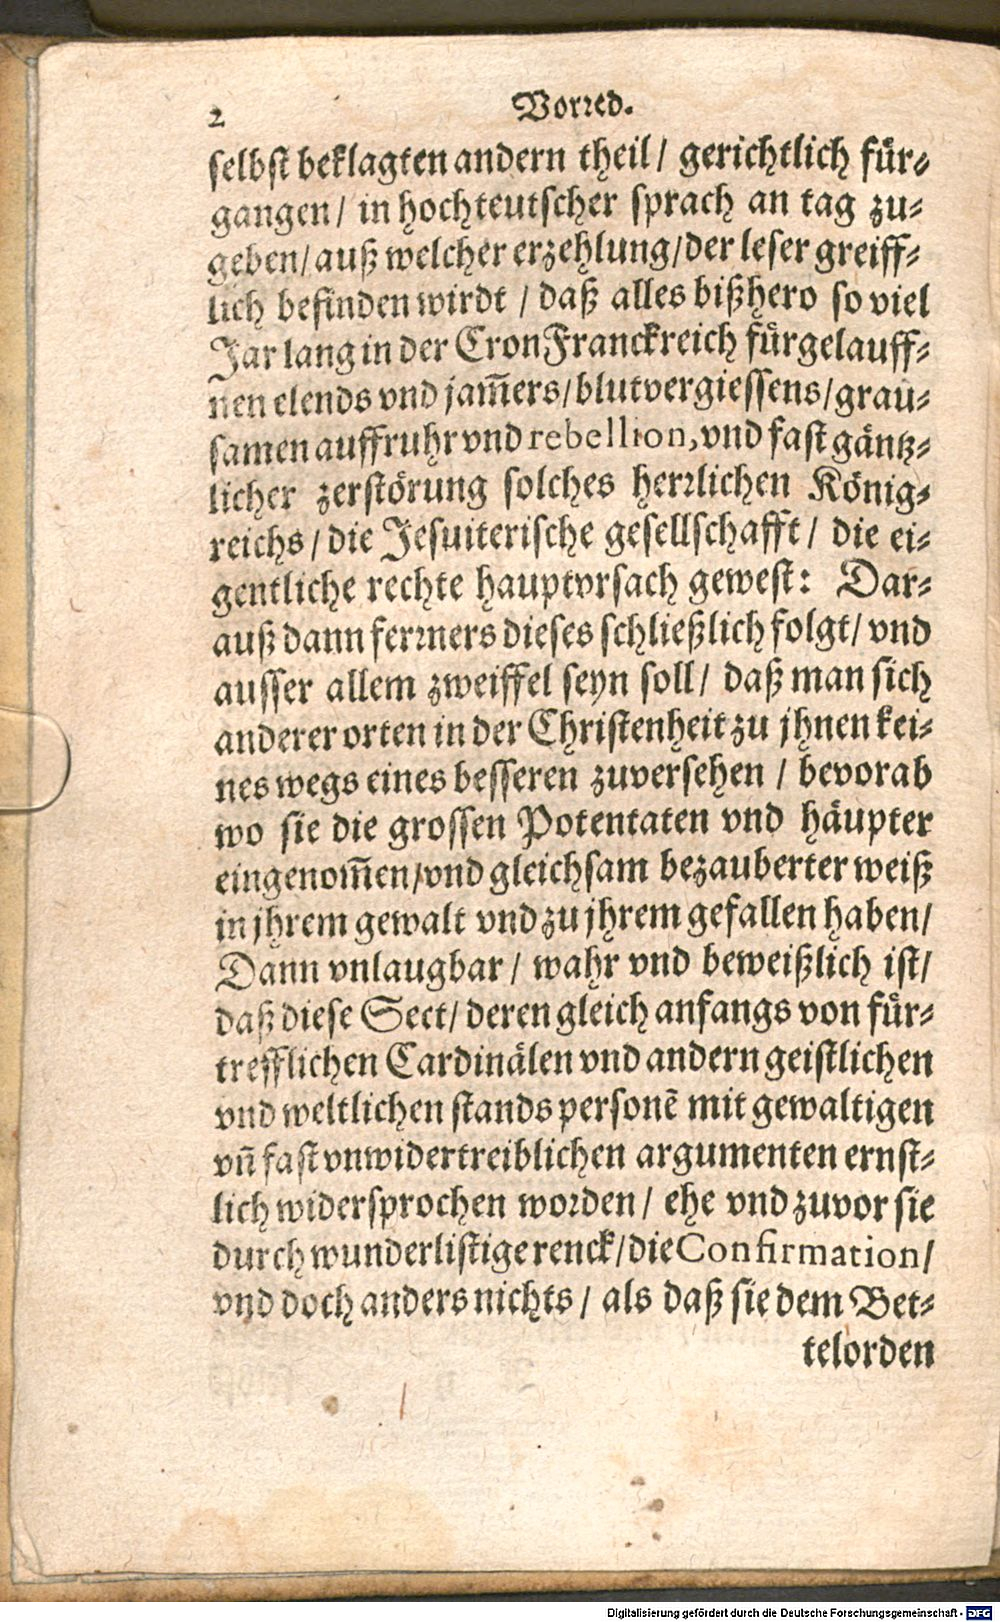 2 Vorred.
selbst beklagten andern theil / gerichtlich für-
gangen / in hochteutscher sprach an tag zu-
geben / auß welcher erzehlung / der leser greiff-
lich befinden wirdt / daß alles bißhero so viel
Jar lang in der Cron Franckreich fürgelauff-
nen elends vnd jam̃ers / blutvergiessens / grau-
samen auffruhr vnd rebellion, vnd fast gäntz-
licher zerstörung solches herrlichen König-
reichs / die Jesuiterische gesellschafft / die ei-
gentliche rechte hauptvrsach gewest: Dar-
auß dann ferrners dieses schließlich folgt / vnd
ausser allem zweiffel seyn soll / daß man sich
anderer orten in der Christenheit zu jhnen kei-
nes wegs eines besseren zuversehen / bevorab
wo sie die grossen Potentaten vnd häupter
eingenom̃en / vnd gleichsam bezauberter weiß
in jhrem gewalt vnd zu jhrem gefallen haben /
Dann vnlaugbar / wahr vnd beweißlich ist /
daß diese Sect / deren gleich anfangs von für-
trefflichen Cardinälen vnd andern geistlichen
vnd weltlichen stands personẽ mit gewaltigen
vñ fast vnwidertreiblichen argumenten ernst-
lich widersprochen worden / ehe vnd zuvor sie
durch wunderlistige renck / die Confirmation /
vnd doch anders nichts / als daß sie dem Bet-
telorden
Digitalisierung gefördert durch die Deutsche Forschungsgemeinschaft - DFG